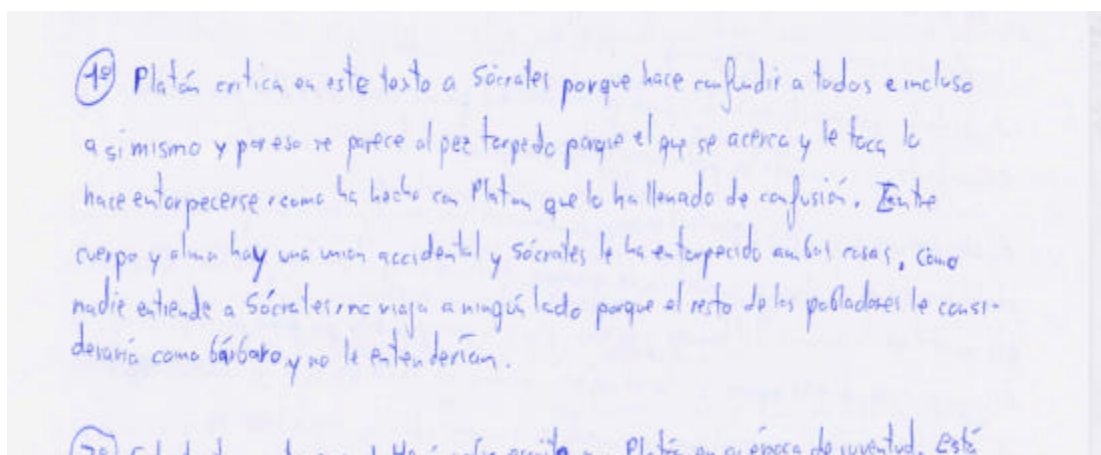 1º Platón critica en este texto a Sócrates porque hace confundir a todos e incluso
a si mismo y por eso se parece al pez torpedo porque el que se acerca y le toca lo
hace entorpecerse como ha hecho con Platon que lo ha llenado de confusión. Entre
cuerpo y alma hay una union accidental y Sócrates le ha entorpecido ambas cosas, como
nadie entiende a Sócrates, no viaja a ningún lado porque el resto de los pobladores le consi-
deraría como bárbaro y no le entenderían.
Platón en su época de juventud. Está